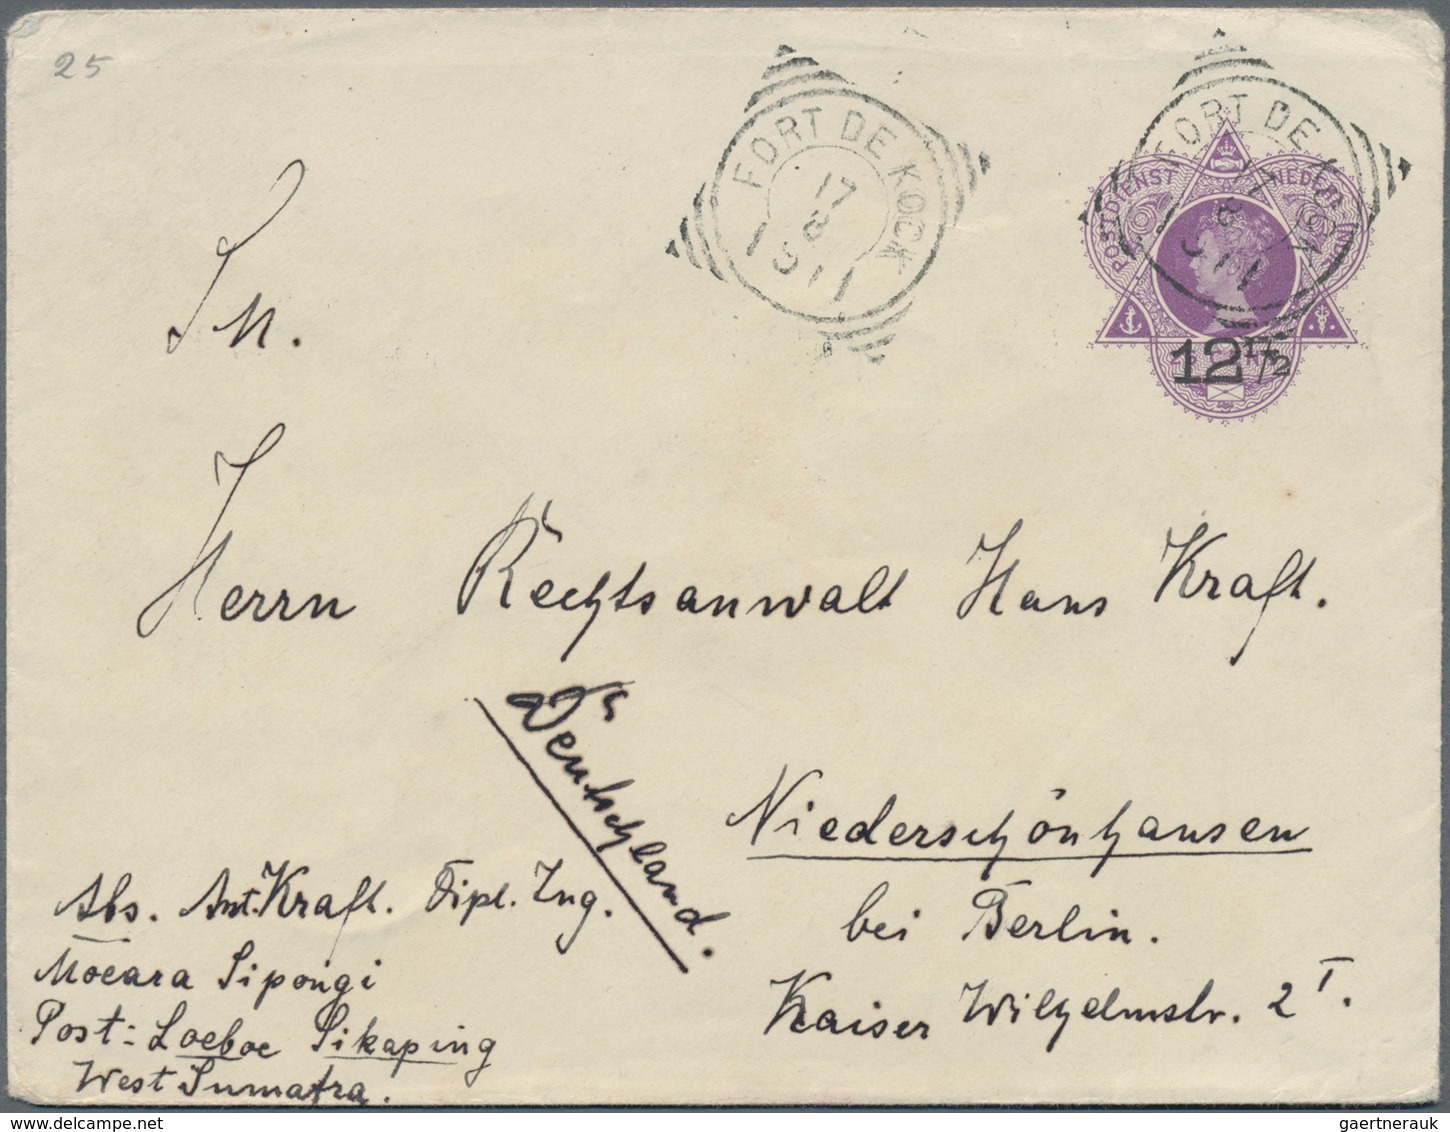 25
FORT DE KOCK
17
8
1911
FORT DE KOCK
17
8
1911
POSTDIENST NEDERL. IND.
12 1/2
Sr.
H.
Herrn Rechtsanwalt Hans Kraft.
Deutschland.
Niederschönhausen
bei Berlin.
Kaiser Wilhelmstr. 2 I.
Abs. Ant. Kraft. Dipl. Ing.
Moeara Sipongi
Post: Loeboe Sikaping
West Sumatra.
gaertnerauk